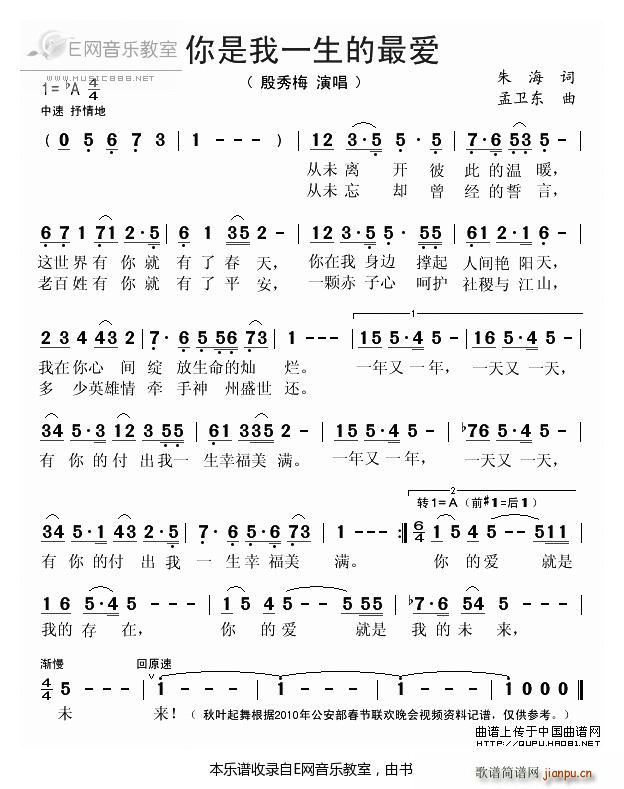 E网音乐教室
WWW.MUSIC888.NET
你是我一生的最爱
（ 殷秀梅 演唱 ）
朱 海 词
孟卫东 曲
1= ♭A 4/4
中速 抒情地
( 0 5 6 7 3 | 1 - - - ) | 12 3·5 5·5 | 7·6 53 5 - |
从未 离 开 彼 此 的 温 暖，
从未 忘 却 曾 经 的 誓 言，
6 7 1 71 2·5 | 6 1 35 2 - | 12 3·5 5·55 | 61 2·1 6 - |
这世界 有 你 就 有 了 春 天， 你在我 身边 撑起 人间艳 阳天，
老百姓 有 你 就 有 了 平 安， 一颗赤 子心 呵护 社稷与 江山，
1
2 3 4 43 2 | 7·6 5 56 73 | 1 - - - | 15 5·4 5 - | 16 5·4 5 - |
我在你心 间 绽 放生命的灿 烂。 一年又 一年， 一天又 一天，
多 少英雄情 牵 手神 州盛世 还。
34 5·3 12 3 55 | 61 335 2 - | 15 5·4 5 - | ♭76 5·4 5 - |
有 你 的 付 出我一 生幸福美 满。 一年又 一年， 一天又 一天，
2
转 1=A（前♯1=后1）
34 5·1 43 2·5 | 7·6 5·6 73 | 1 - - - :‖ 6/4 15 45 - - 511 |
有 你 的付 出我 一 生 幸 福美 满。 你 的 爱 就是
1 6 5·45 - - - | 15 45 - - 555 | ♭7·6 54 5 - |
我的 存 在， 你 的 爱 就是 我 的 未 来，
渐慢 回原速
4/4 5 - - - | 1 - - - | 1 - - - | 1 - - - | 1 0 0 0 ‖
未 来！（ 秋叶起舞根据2010年公安部春节联欢晚会视频资料记谱，仅供参考。）
曲谱上传于中国曲谱网
HTTP://QUPU.HAO81.NET
本乐谱收录自E网音乐教室，由书
歌谱简谱网
jianpu.cn